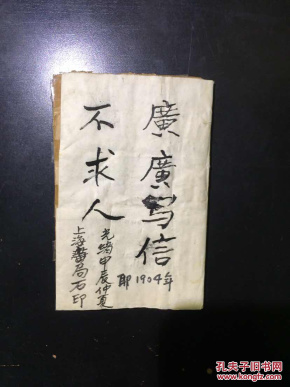 廣廣写信
不求人
光緒甲辰仲夏
上海書局石印
即1904年
孔夫子旧书网